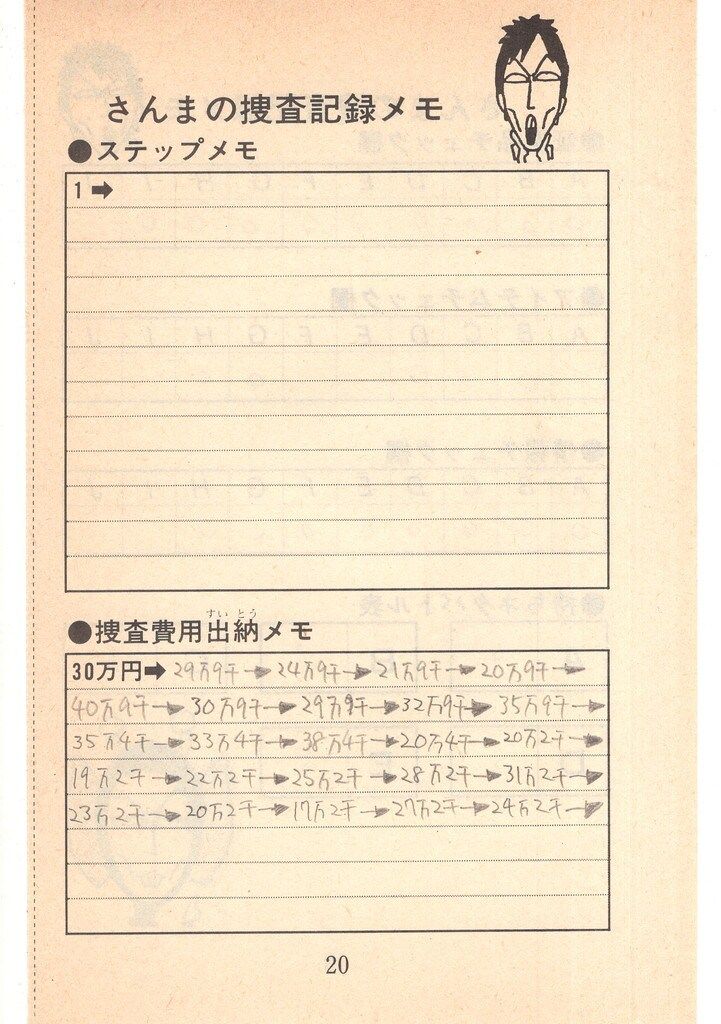 さんまの捜査記録メモ
●ステップメモ
1➡
●捜査費用出納メモ
すいとう
30万円➡ 29万9千→ 24万9千→ 21万9千→ 20万9千→
40万9千→ 30万9千→ 29万9千→ 32万9千→ 35万9千→
35万4千→ 33万4千→ 38万4千→ 20万4千→ 20万2千→
19万2千→ 22万2千→ 25万2千→ 28万2千→ 31万2千→
23万2千→ 20万2千→ 17万2千→ 27万2千→ 24万2千→
20